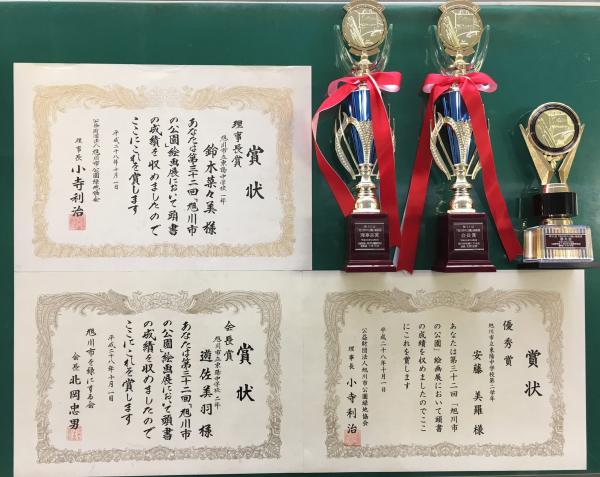 賞状
理事長賞
旭川市立東陽中学校 二年
鈴木菜々美 様
あなたは第三十二回「旭川市
の公園」絵画展において頭書
の成績を収めましたので
ここにこれを賞します
平成二十八年十月一日
公益財団法人旭川市公園緑地協会
理事長 小寺利治
理事長賞
会長賞
賞状
会長賞
旭川市立東陽中学校 二年
遊佐美羽 様
あなたは第三十二回「旭川市
の公園」絵画展において頭書
の成績を収めましたので
ここにこれを賞します
平成二十八年十月一日
旭川市を緑にする会
会長 北岡忠男
賞状
優秀賞
旭川市立東陽中学校第二学年
安藤 美羅 様
あなたは第三十二回「旭川市
の公園」絵画展において頭書
の成績を収めましたのでここ
にこれを賞します
平成二十八年十月一日
公益財団法人旭川市公園緑地協会
理事長 小寺利治